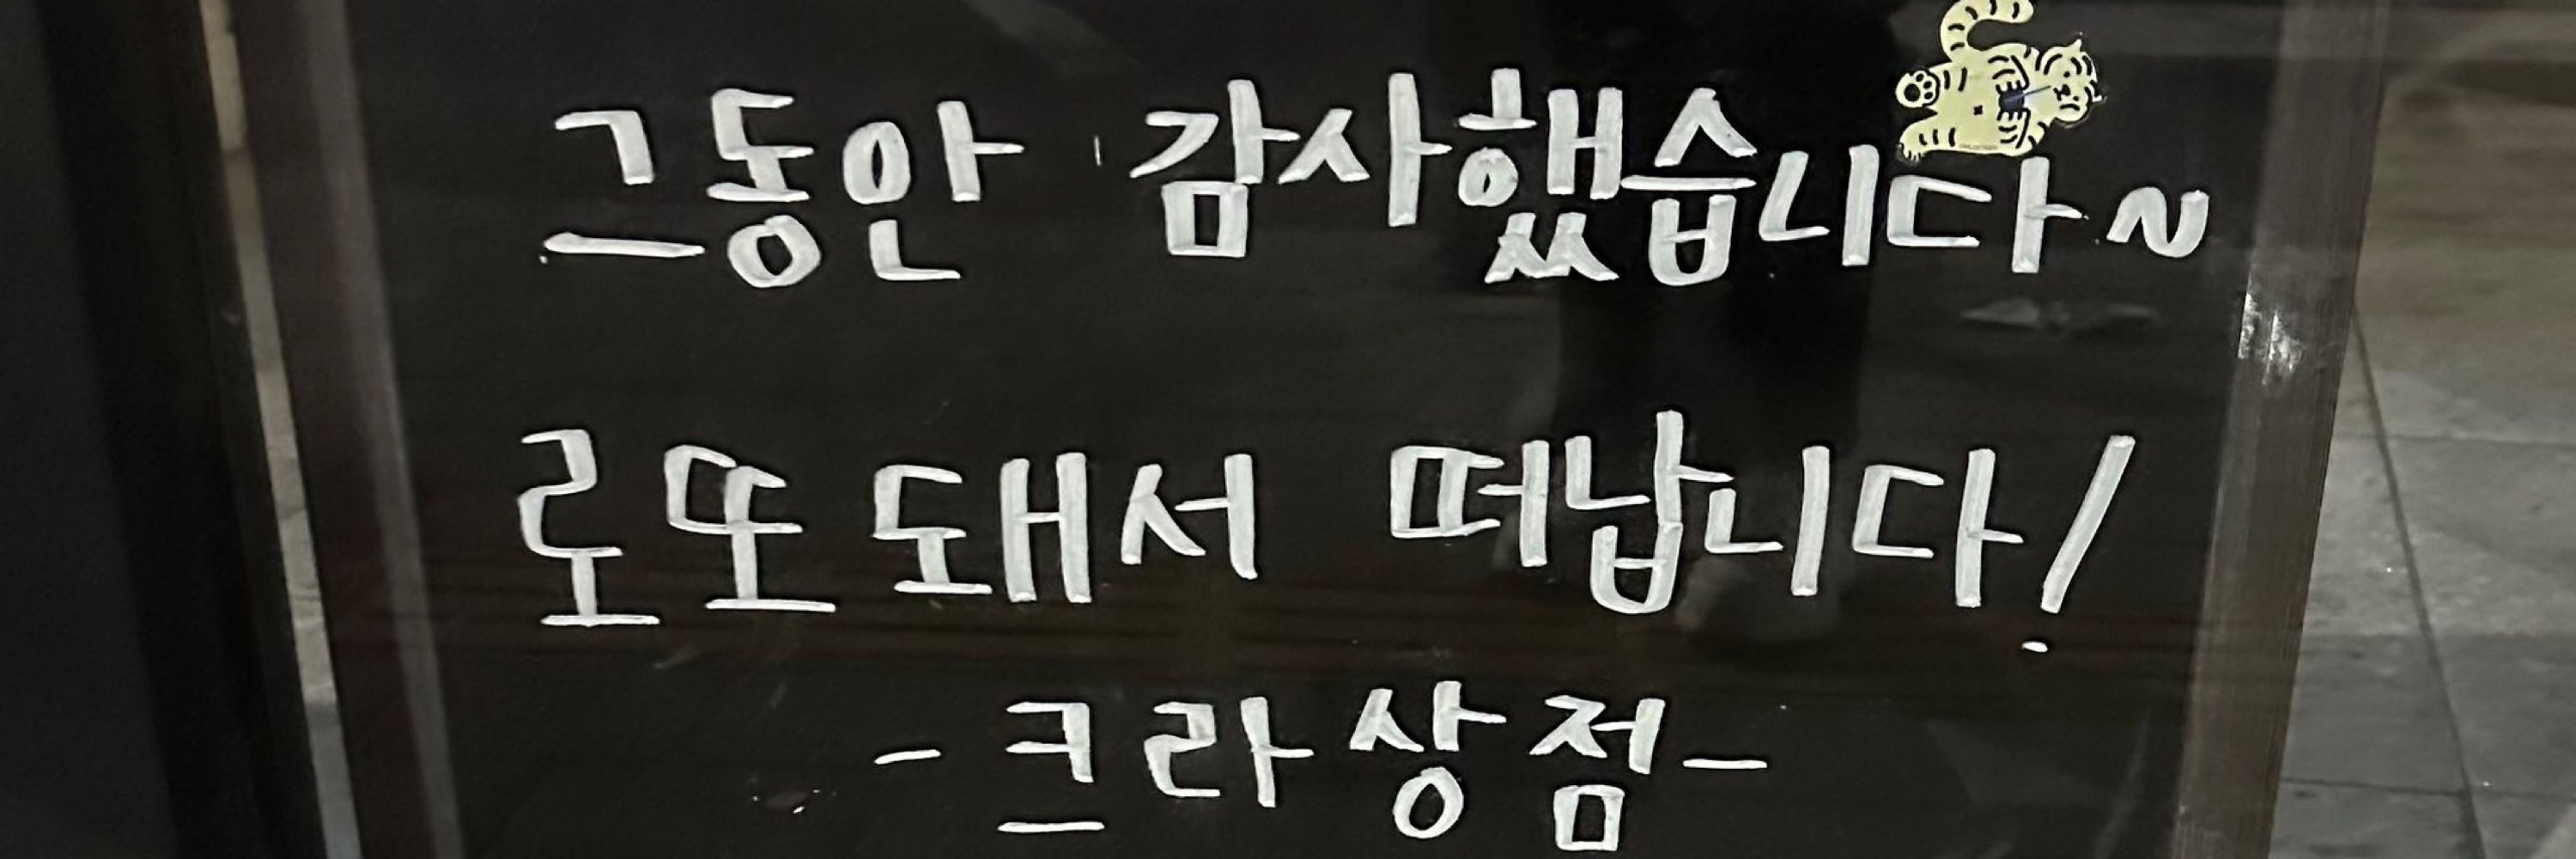 그동안 감사했습니다~
로또돼서 떠납니다!
- 크라상점 -